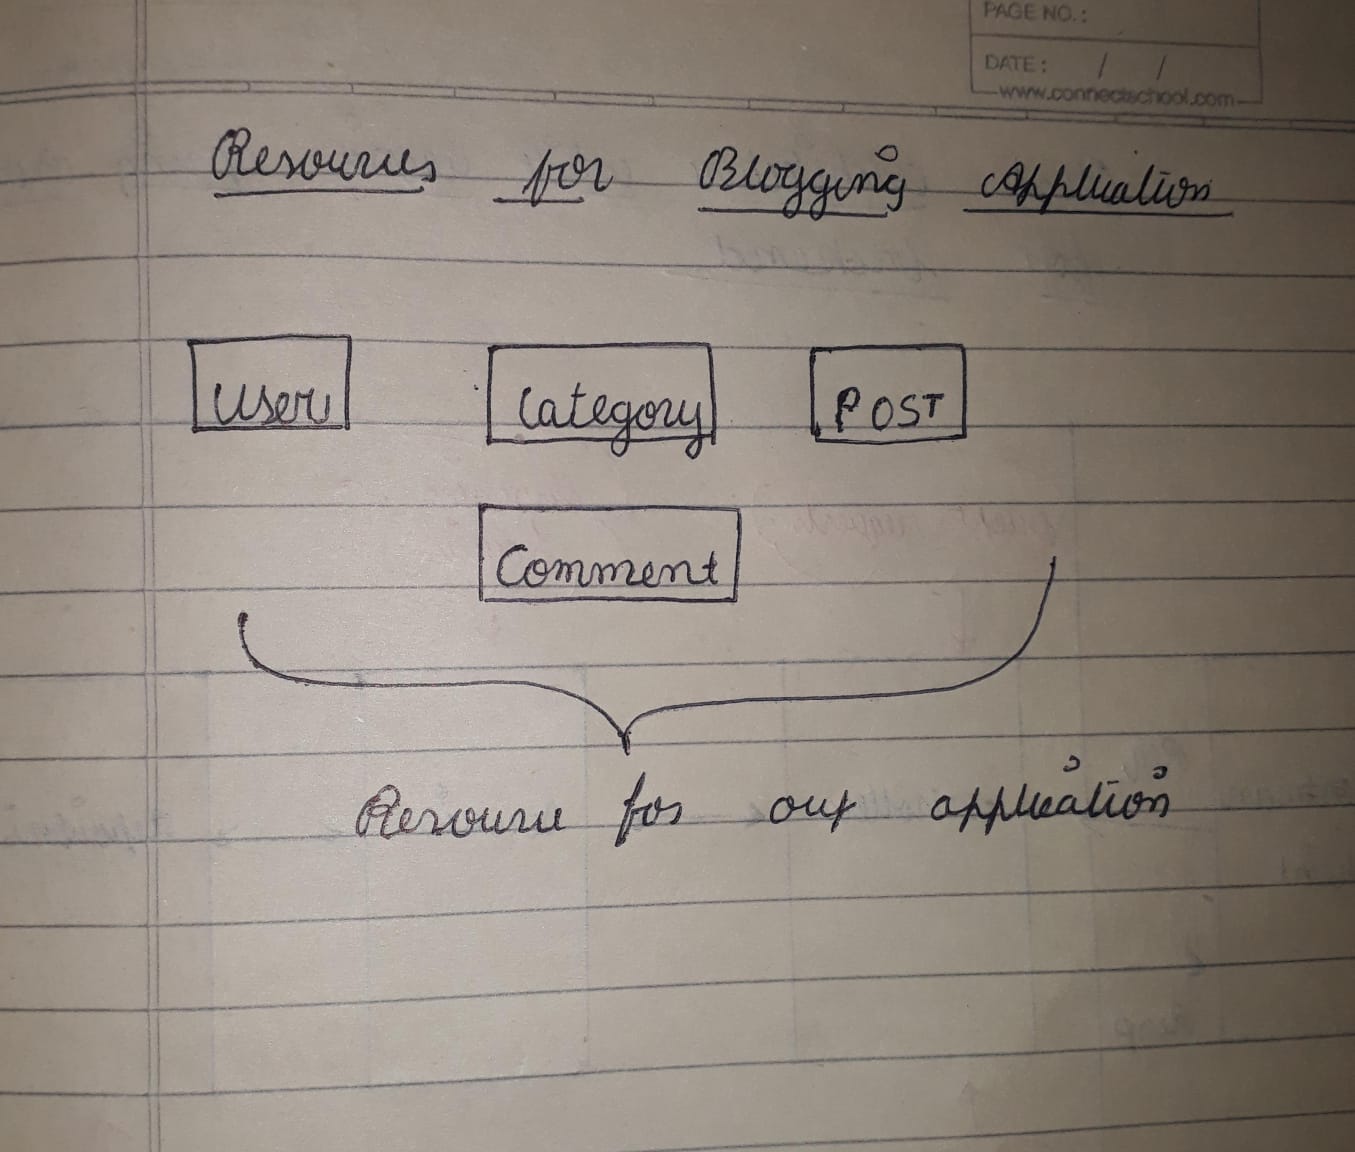 PAGE NO.:
DATE: / /
www.connectschool.com
Resources for Blogging Application
User Category POST
Comment
Resource for our application